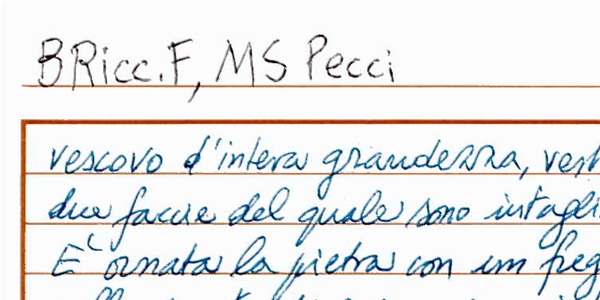 BRicc.F, MS Pecci
vescovo d'intera grandezza, vest
due faccie del quale sono intagli
E' ornata la pietra con un freg